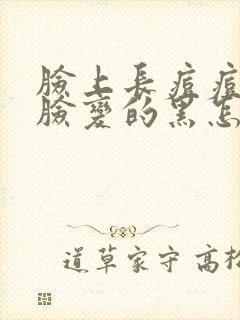 臉上長痘痘
臉變的黑怎
道草家守 高松